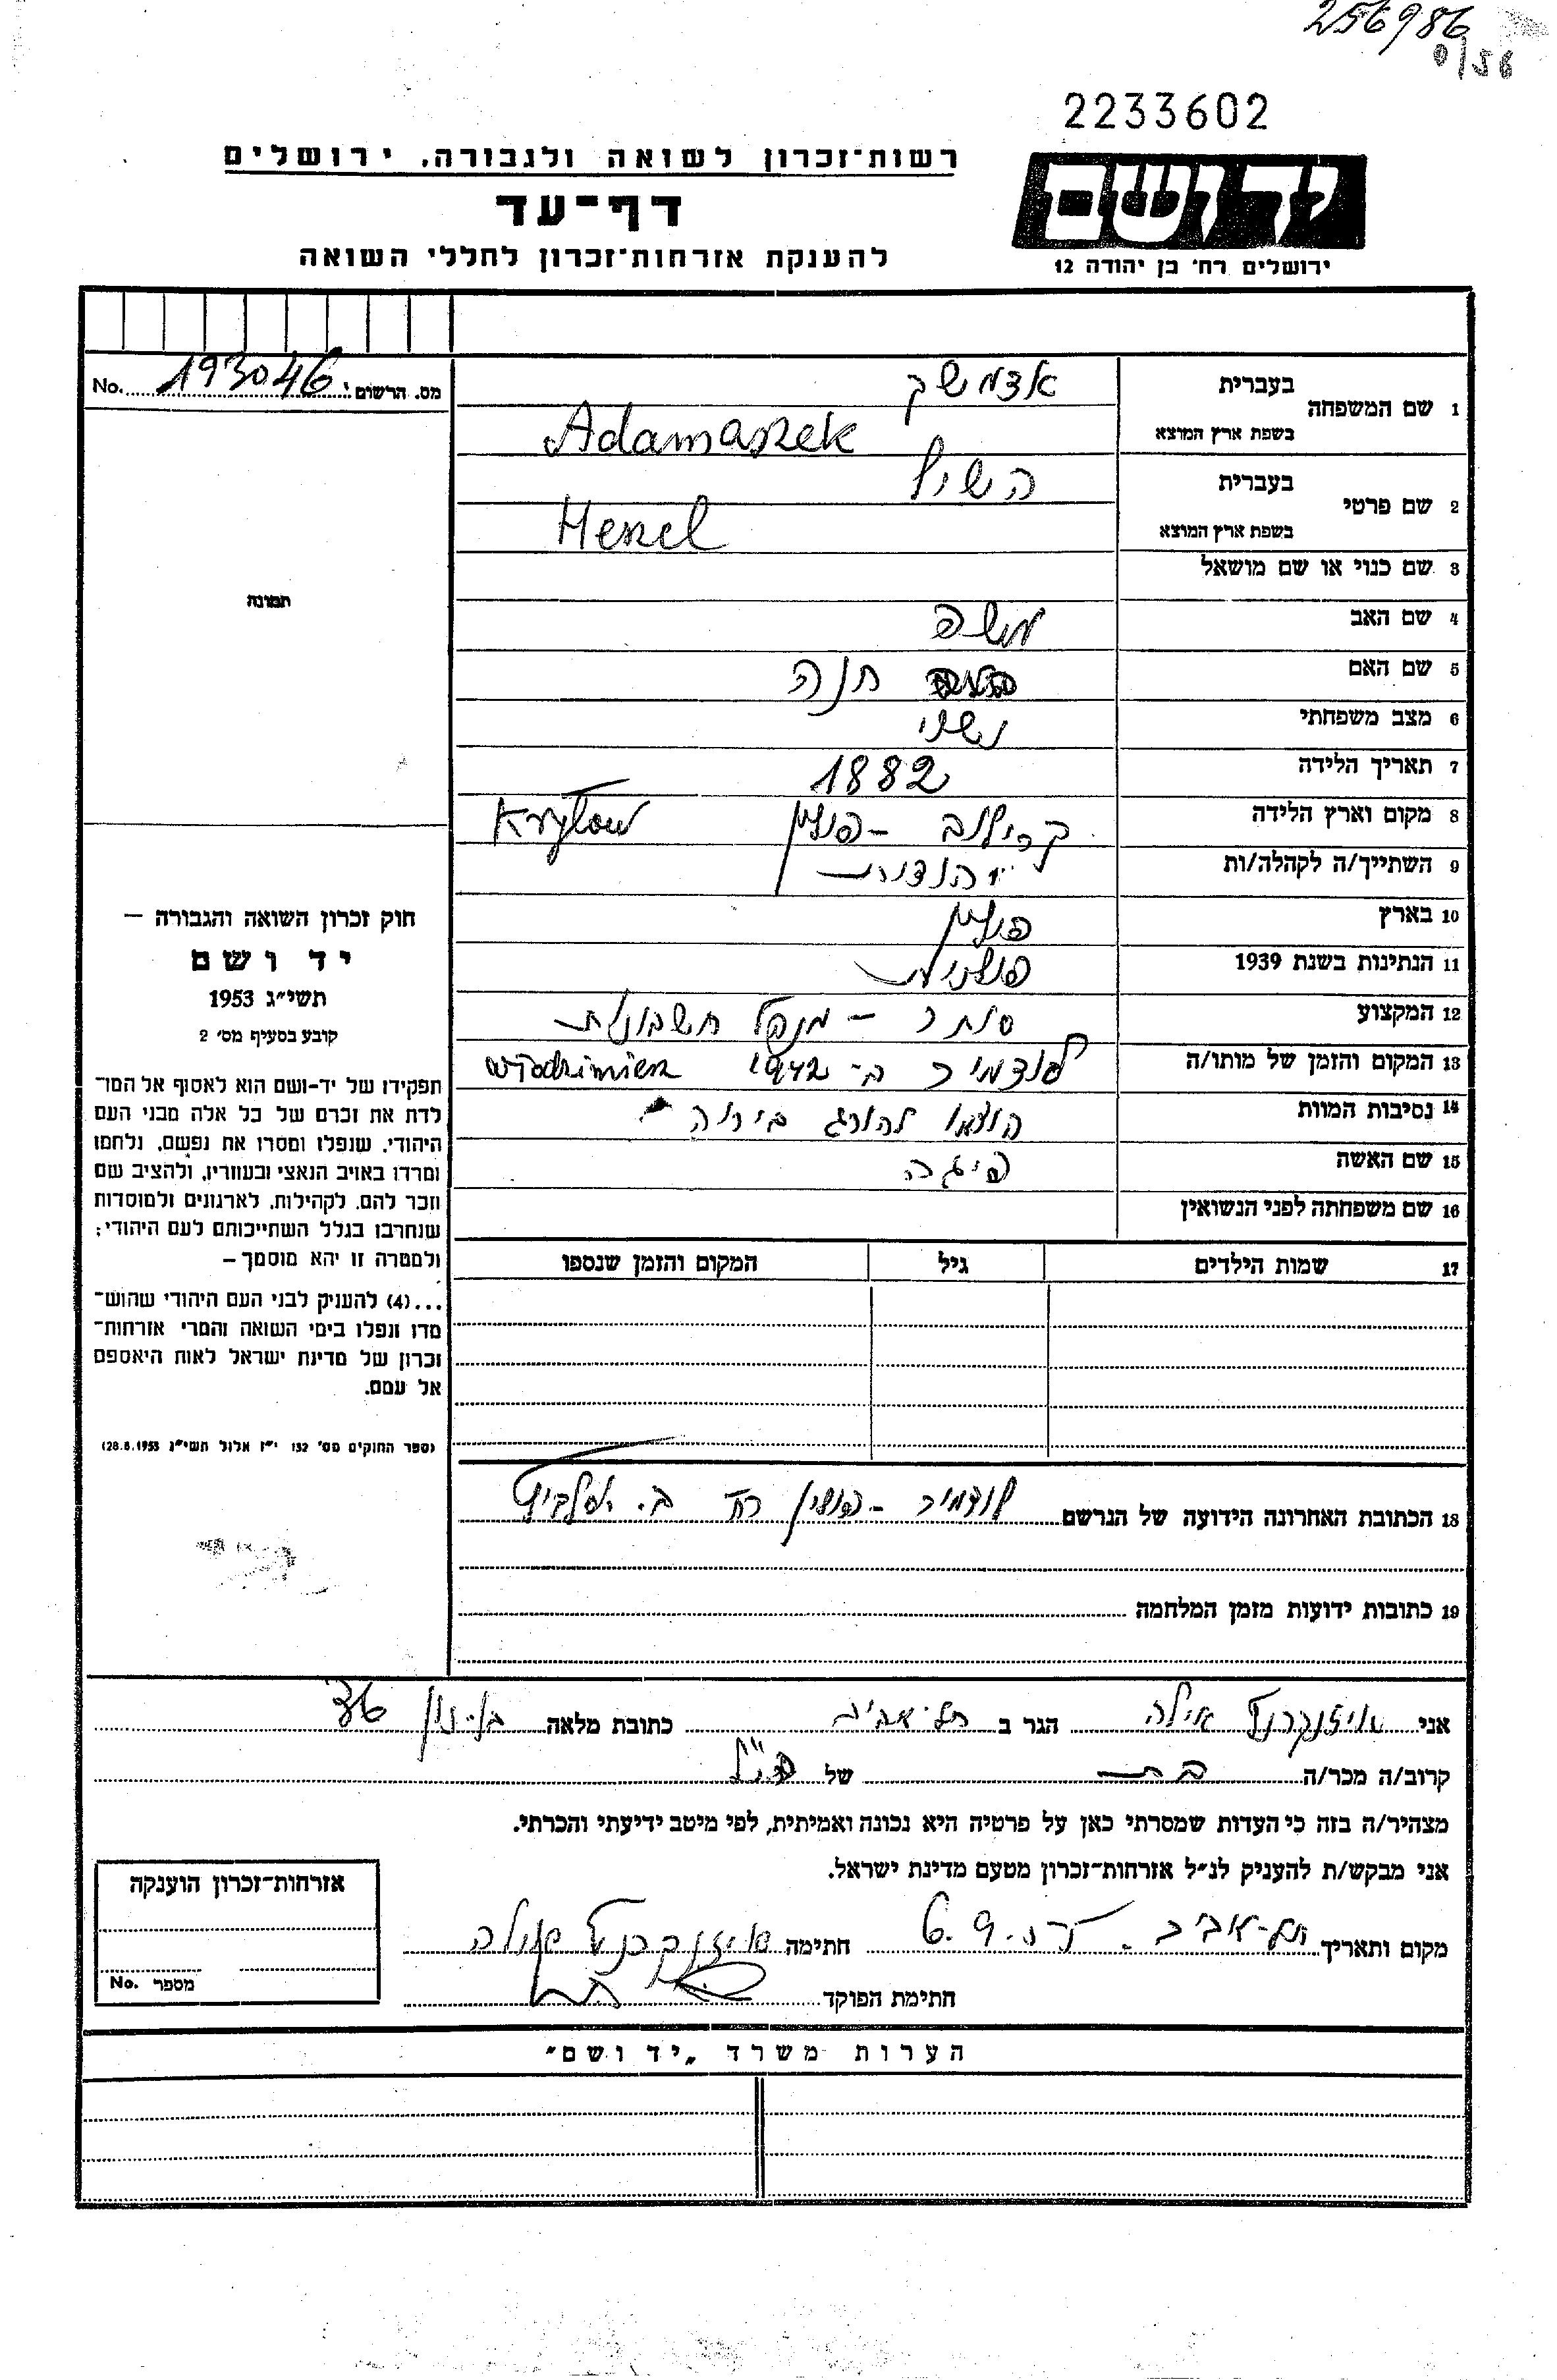 256986
0/56
2233602
רשות־זכרון לשואה ולגבורה, ירושלים
דף־עד
להענקת אזרחות־זכרון לחללי השואה
ידושם
ירושלים רח' בן יהודה 12
מס. הרשום: 193046 No.
1 שם המשפחה
בעברית אדמשק
בשפת ארץ המוצא Adamaszek
2 שם פרטי
בעברית השיל
בשפת ארץ המוצא Heszel
3 שם כנוי או שם מושאל
4 שם האב משה
5 שם האם חנה
6 מצב משפחתי נשוי
7 תאריך הלידה 1882
8 מקום וארץ הלידה קרילוב - פולין Kryłow
9 השתייך/ה לקהלה/ות יהודית
10 בארץ פולין
11 הנתינות בשנת 1939 פולנית
12 המקצוע סוחר - מנהל חשבונות
13 המקום והזמן של מותו/ה לודמיר ב- 1942 Włodzimierz
14 נסיבות המוות הוצאו להורג ביריה
15 שם האשה פיגה
16 שם משפחתה לפני הנשואין
17 שמות הילדים גיל המקום והזמן שנספו
18 הכתובת האחרונה הידועה של הנרשם לודמיר - פולין רח' ב.
19 כתובות ידועות מזמן המלחמה
תמונה
חוק זכרון השואה והגבורה –
יד ושם
תשי״ג 1953
קובע בסעיף מס' 2
תפקידו של יד-ושם הוא לאסוף אל המו־
לדת את זכרם של כל אלה מבני העם
היהודי, שנפלו ומסרו את נפשם, נלחמו
ומרדו באויב הנאצי ובעוזריו, ולהציב שם
וזכר להם, לקהילות, לארגונים ולמוסדות
שנחרבו בגלל השתייכותם לעם היהודי;
ולמטרה זו יהא מוסמך –
...(4) להעניק לבני העם היהודי שהוש־
מדו ונפלו בימי השואה והמרי אזרחות־
זכרון של מדינת ישראל לאות היאספם
אל עמם.
(ספר החוקים מס' 132 י״ז אלול תשי״ג 28.8.1953)
אני אייזנקרפט אילה הגר ב תל-אביב כתובת מלאה בן-נון 36
קרוב/ה מכר/ה בת של הנ״ל
מצהיר/ה בזה כי העדות שמסרתי כאן על פרטיה היא נכונה ואמיתית, לפי מיטב ידיעתי והכרתי.
אני מבקש/ת להעניק לנ״ל אזרחות־זכרון מטעם מדינת ישראל.
מקום ותאריך תל-אביב 6.9. חתימה אייזנקרפט אילה
חתימת הפוקד
אזרחות־זכרון הוענקה
מספר No.
הערות משרד „יד ושם״